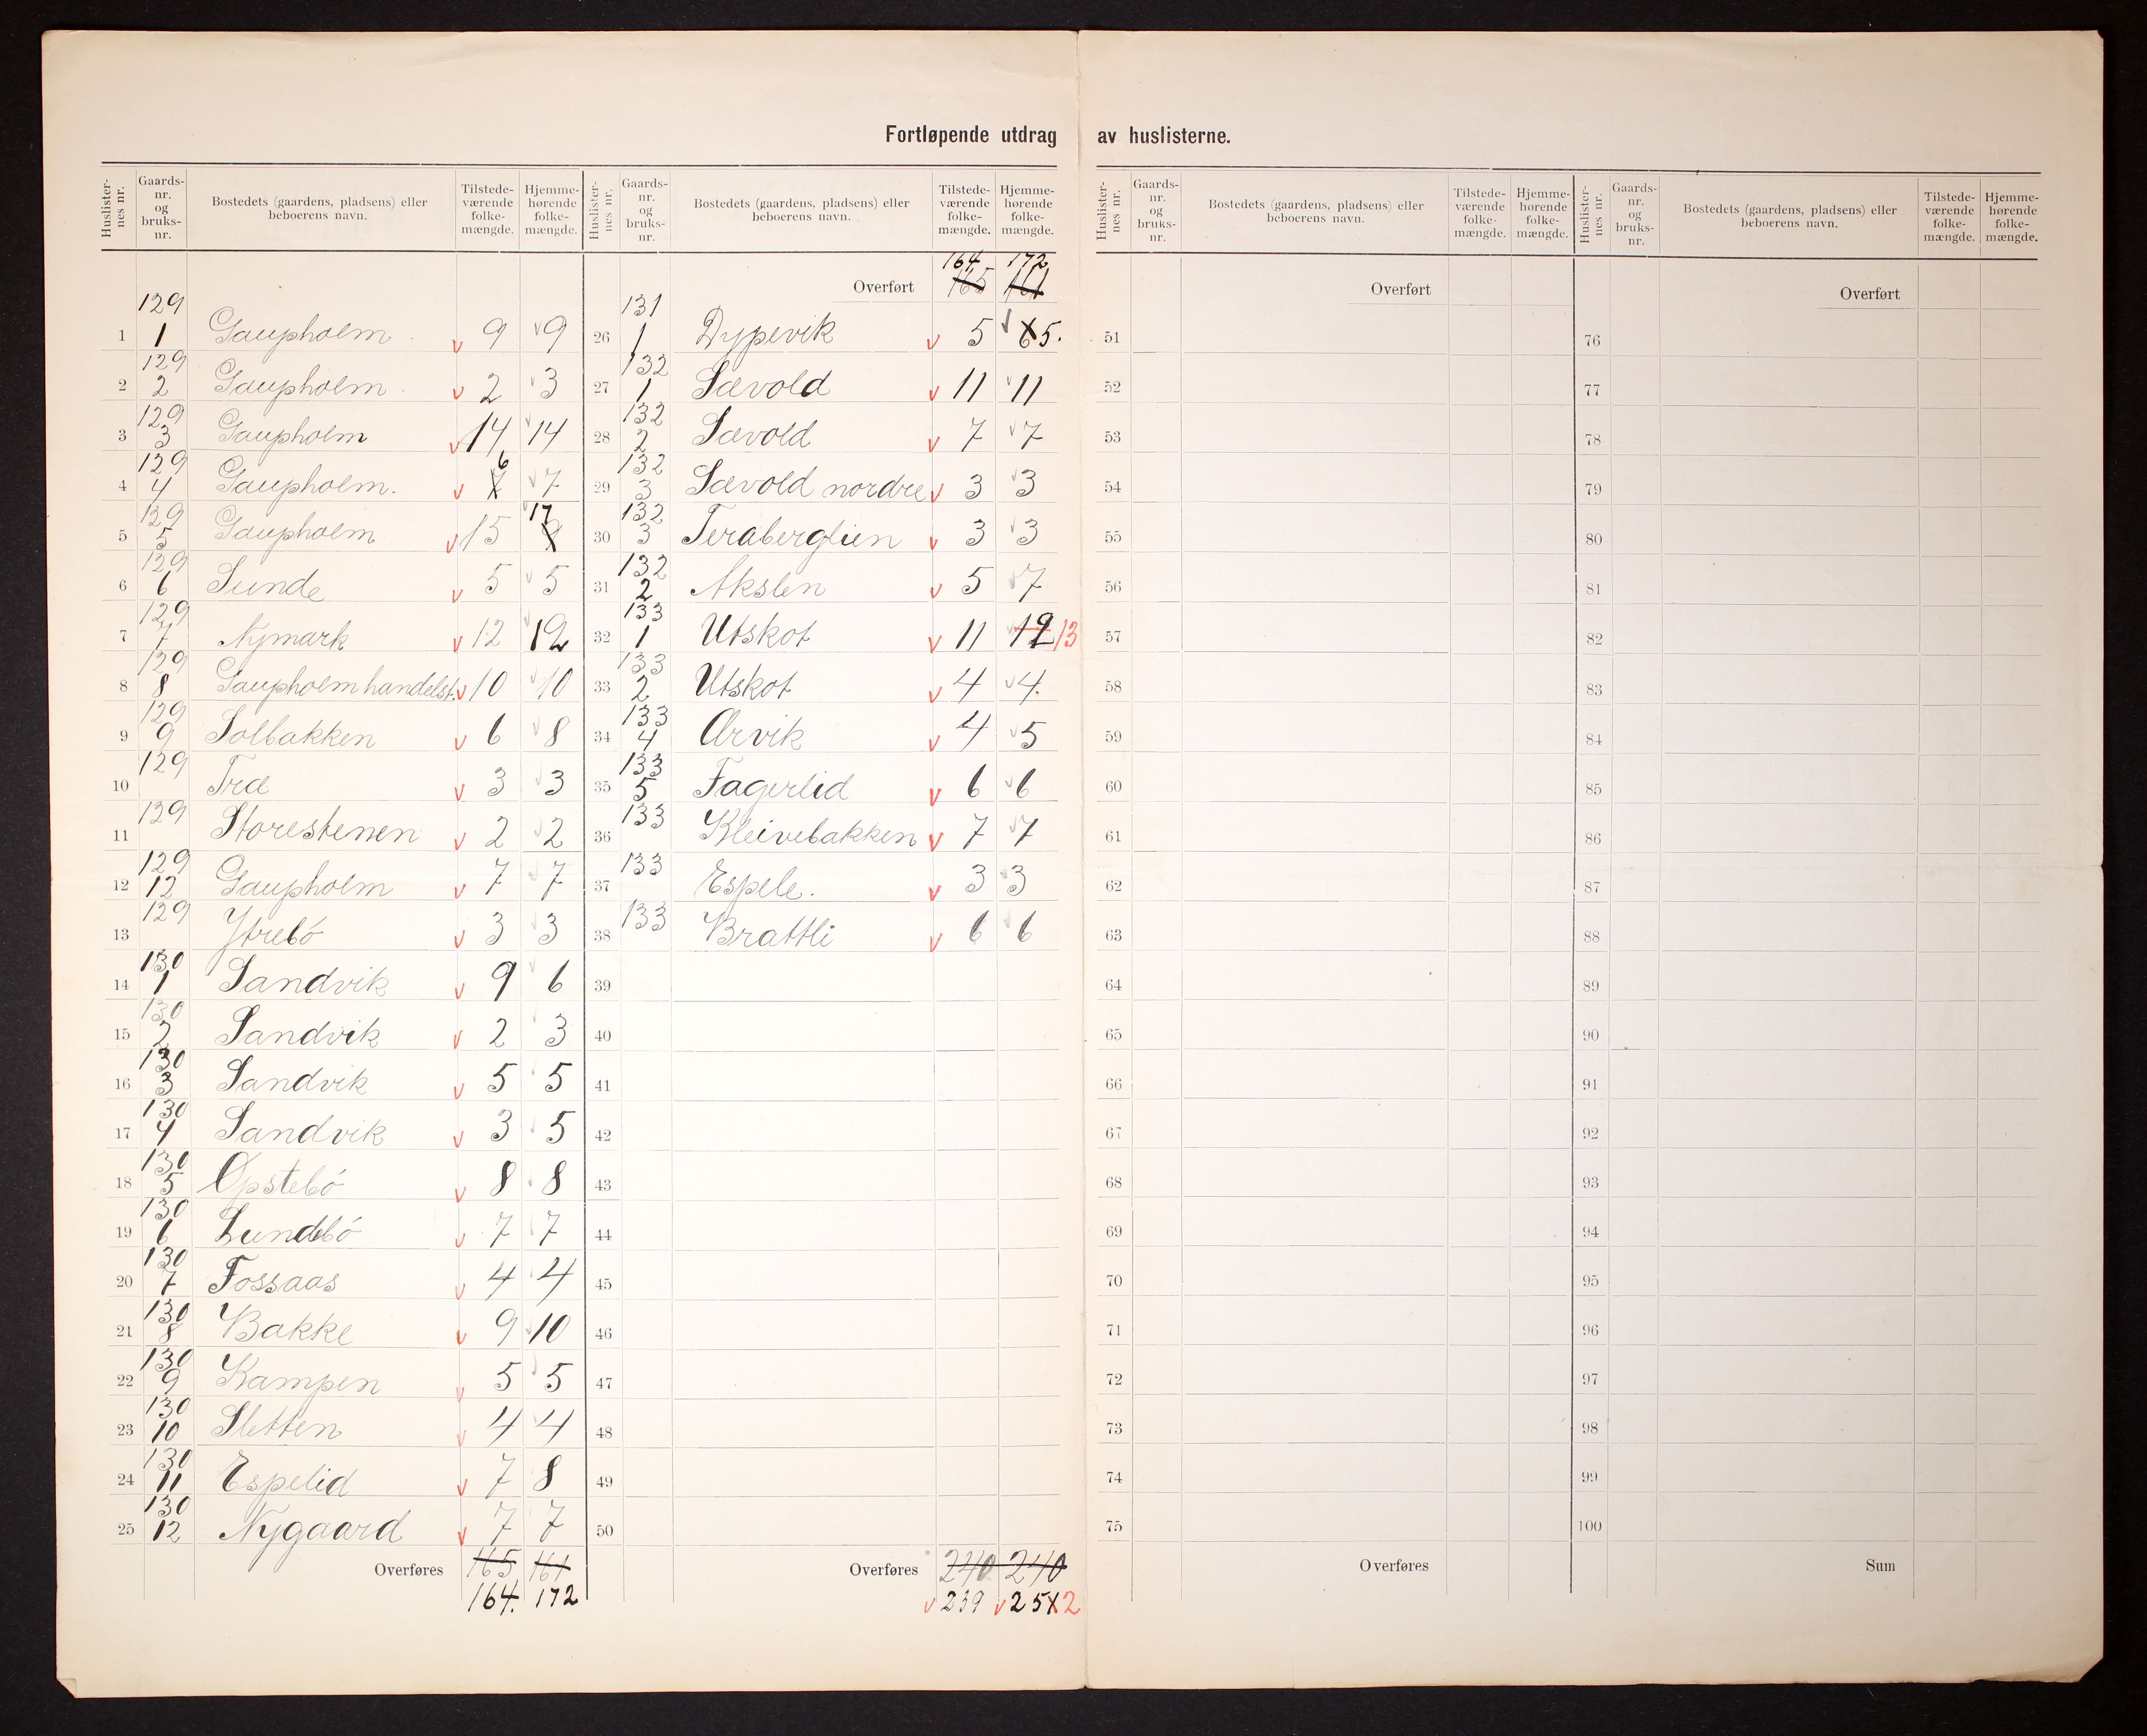 Fortløpende utdrag av huslisterne.
Huslister-nes nr. Gaards-nr. og bruks-nr. Bostedets (gaardens, pladsens) eller beboerens navn. Tilstede-værende folke-mængde. Hjemme-hørende folke-mængde.
1 129 1 Gaupholm 9 9
2 129 2 Gaupholm 2 3
3 129 3 Gaupholm 14 14
4 129 4 Gaupholm. 7 6 7
5 129 5 Gaupholm 15 17
6 129 6 Sunde 5 5
7 129 7 Nymark 12 12
8 129 8 Gaupholm handelst. 10 10
9 129 9 Solbakken 6 8
10 129 Træ 3 3
11 129 Storestenen 2 2
12 129 12 Gaupholm 7 7
13 129 Ytrebó 3 3
14 130 1 Sandvik 9 6
15 130 2 Sandvik 2 3
16 130 3 Sandvik 5 5
17 130 4 Sandvik 3 5
18 130 5 Opstebó 8 8
19 130 6 Lundebó 7 7
20 130 7 Fossaas 4 4
21 130 8 Bakke 9 10
22 130 9 Kampen 5 5
23 130 10 Sletten 4 4
24 130 11 Espelid 7 8
25 130 12 Nygaard 7 7
Overføres 165 161
164. 172
Huslister-nes nr. Gaards-nr. og bruks-nr. Bostedets (gaardens, pladsens) eller beboerens navn. Tilstede-værende folke-mængde. Hjemme-hørende folke-mængde.
164 172
Overført 165 161
26 131 1 Dypevik 5 6 5.
27 132 1 Sævold 11 11
28 132 2 Sævold 7 7
29 132 3 Sævold nordre 3 3
30 132 3 Teraberglien 3 3
31 132 2 Akslen 5 7
32 133 1 Utskot 11 12 13
33 133 2 Utskot 4 4.
34 133 4 Arvik 4 5
35 133 5 Fagerlid 6 6
36 133 Kleivebakken 7 7
37 133 Espele. 3 3
38 133 Brattli 6 6
39
40
41
42
43
44
45
46
47
48
49
50
Overføres 240 240
239 251 2
Huslister-nes nr. Gaards-nr. og bruks-nr. Bostedets (gaardens, pladsens) eller beboerens navn. Tilstede-værende folke-mængde. Hjemme-hørende folke-mængde.
Overført
51
52
53
54
55
56
57
58
59
60
61
62
63
64
65
66
67
68
69
70
71
72
73
74
75
Overføres
Huslister-nes nr. Gaards-nr. og bruks-nr. Bostedets (gaardens, pladsens) eller beboerens navn. Tilstede-værende folke-mængde. Hjemme-hørende folke-mængde.
Overført
76
77
78
79
80
81
82
83
84
85
86
87
88
89
90
91
92
93
94
95
96
97
98
99
100
Sum